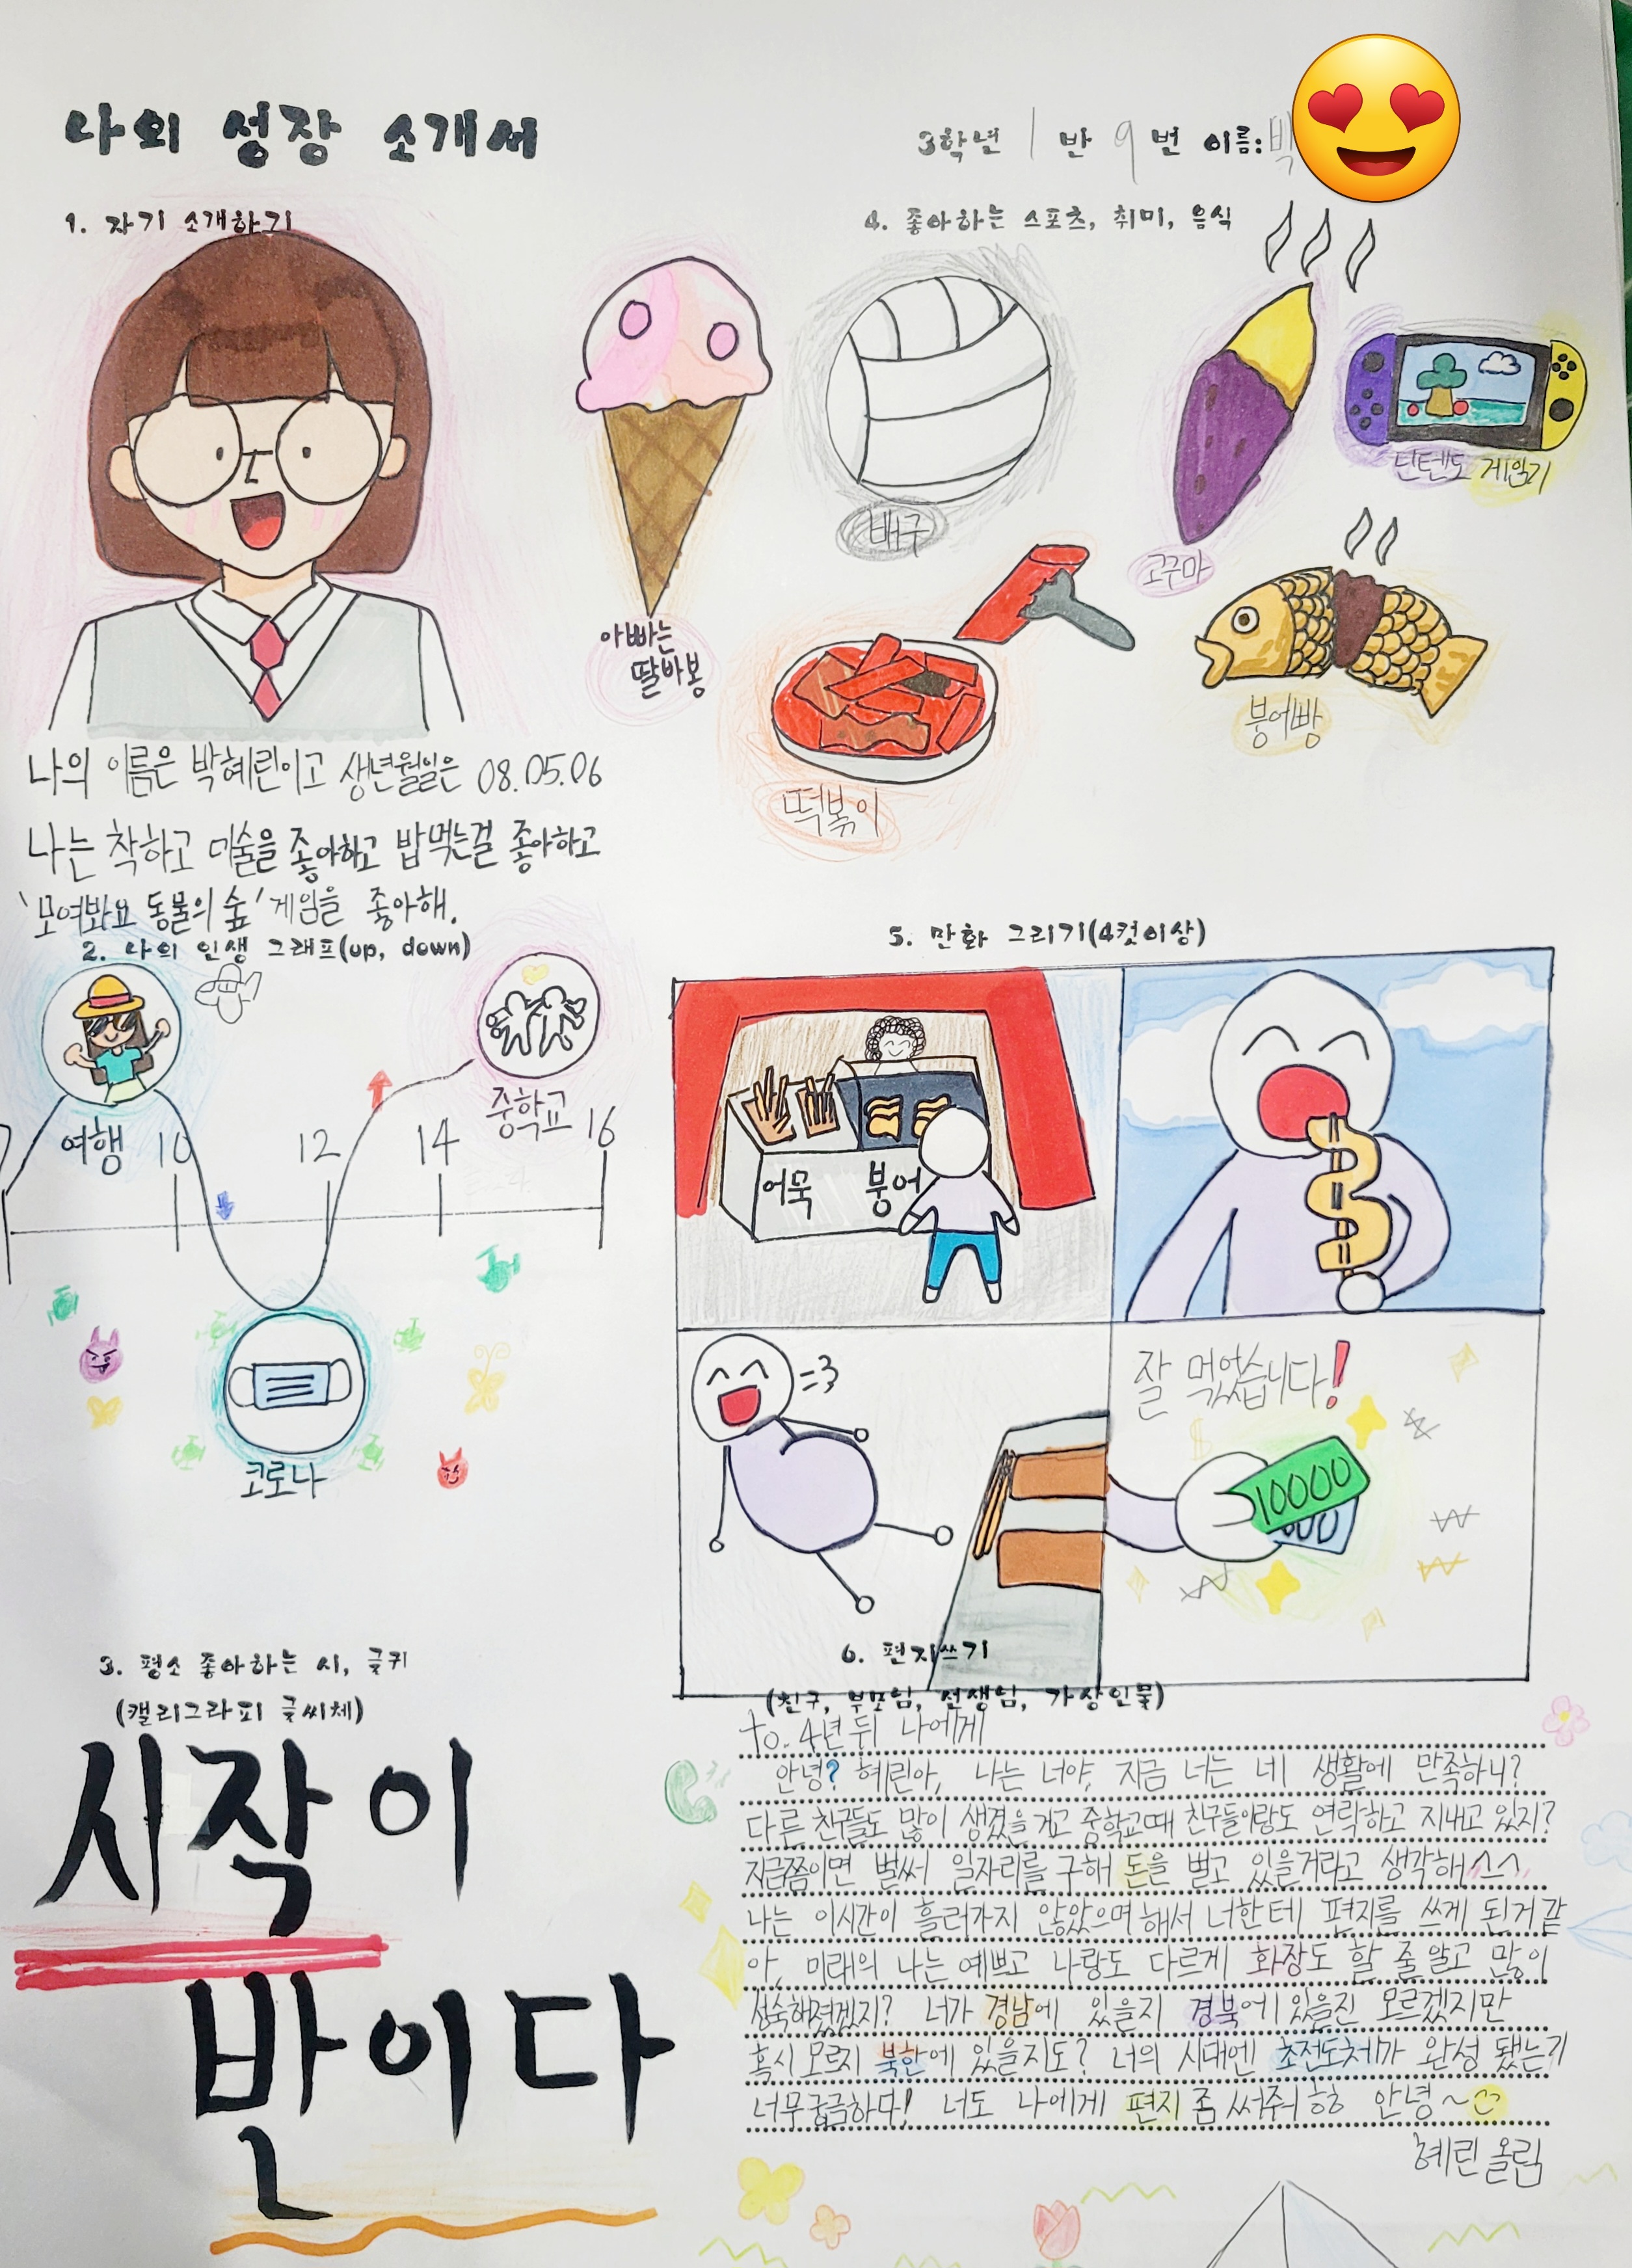 나의 성장 소개서
3학년 1 반 9 번 이름: 박
1. 자기 소개하기
나의 이름은 박혜린이고 생년월일은 08.05.06
나는 착하고 미술을 좋아하고 밥먹는걸 좋아하고
'모여봐요 동물의 숲' 게임을 좋아해.
2. 나의 인생 그래프(up, down)
여행
10
12
14
중학교
16
코로나
3. 평소 좋아하는 시, 글귀
(캘리그라피 글씨체)
시작이
반이다
4. 좋아하는 스포츠, 취미, 음식
아빠는
딸바봉
배구
고구마
닌텐도 게임기
떡볶이
붕어빵
5. 만화 그리기(4컷이상)
어묵 붕어
=3
잘 먹었습니다!
10000
000
6. 편지쓰기
(친구, 부모님, 선생님, 가상인물)
to. 4년 뒤 나에게
안녕? 혜린아, 나는 너야, 지금 너는 네 생활에 만족하니?
다른 친구들도 많이 생겼을거고 중학교때 친구들이랑도 연락하고 지내고 있지?
지금쯤이면 벌써 일자리를 구해 돈을 벌고 있을거라고 생각해^^
나는 이시간이 흘러가지 않았으며 해서 너한테 편지를 쓰게 된거 같
아, 미래의 나는 예쁘고 나랑도 다르게 화장도 할 줄 알고 많이
성숙해졌겠지? 너가 경남에 있을지 경북에 있을진 모르겠지만
혹시 모르지 북한에 있을지도? 너의 시대엔 초전도체가 완성 됐는기
너무 궁금하다! 너도 나에게 편지 좀 써줘 ㅎㅎ 안녕~
혜린 올림